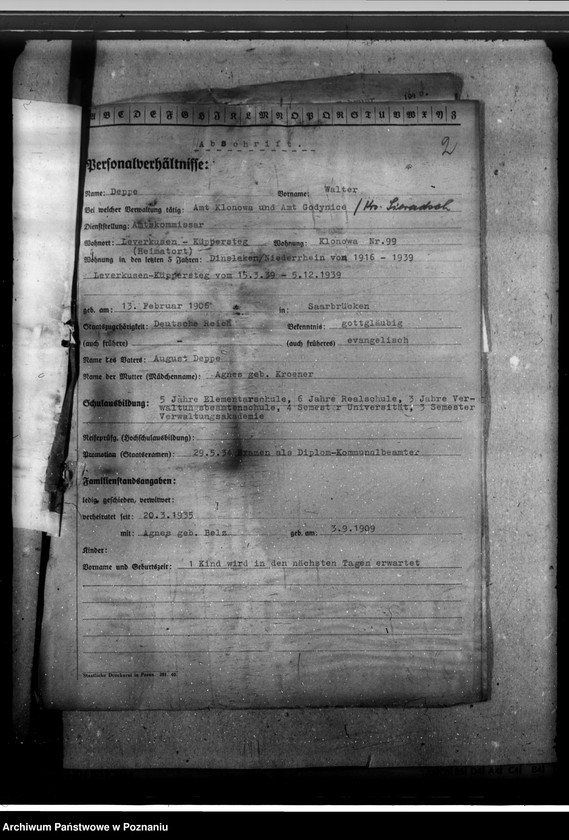 A B C D E F G H J K L M N O P Q R S T U V W X Y Z
Abschrift.
2
Personalverhältnisse:
Name: Deppe Vorname: Walter
Bei welcher Verwaltung tätig: Amt Klonowa und Amt Godynice / Krs. Sieradsch
Dienststellung: Amtskommissar
Wohnort: Leverkusen - Küppersteg Wohnung: Klonowa Nr.99
(Heimatort)
Wohnung in den letzten 5 Jahren: Dinslaken/Niederrhein von 1916 - 1939
Leverkusen-Küppersteg vom 15.3.39 - 5.12.1939
geb. am: 13. Februar 1906 in: Saarbrücken
Staatszugehörigkeit: Deutsche Reich Bekenntnis: gottgläubig
(auch frühere) - (auch früheres) evangelisch
Name des Vaters: August Deppe
Name der Mutter (Mädchenname): Agnes geb. Kroener
Schulausbildung: 5 Jahre Elementarschule, 6 Jahre Realschule, 3 Jahre Ver-
waltungsbeamtenschule, 4 Semester Universität, 3 Semester
Verwaltungsakademie
Reifeprüfg. (Hochschulausbildung):
Promotion (Staatsexamen): 29.5.34 Examen als Diplom-Kommunalbeamter
Familienstandsangaben:
ledig, geschieden, verwitwet:
verheiratet seit: 20.3.1935
mit: Agnes geb. Beln geb. am: 3.9.1909
Kinder:
Vorname und Geburtszeit: 1 Kind wird in den nächsten Tagen erwartet
Staatliche Druckerei in Posen
Archiwum Państwowe w Poznaniu